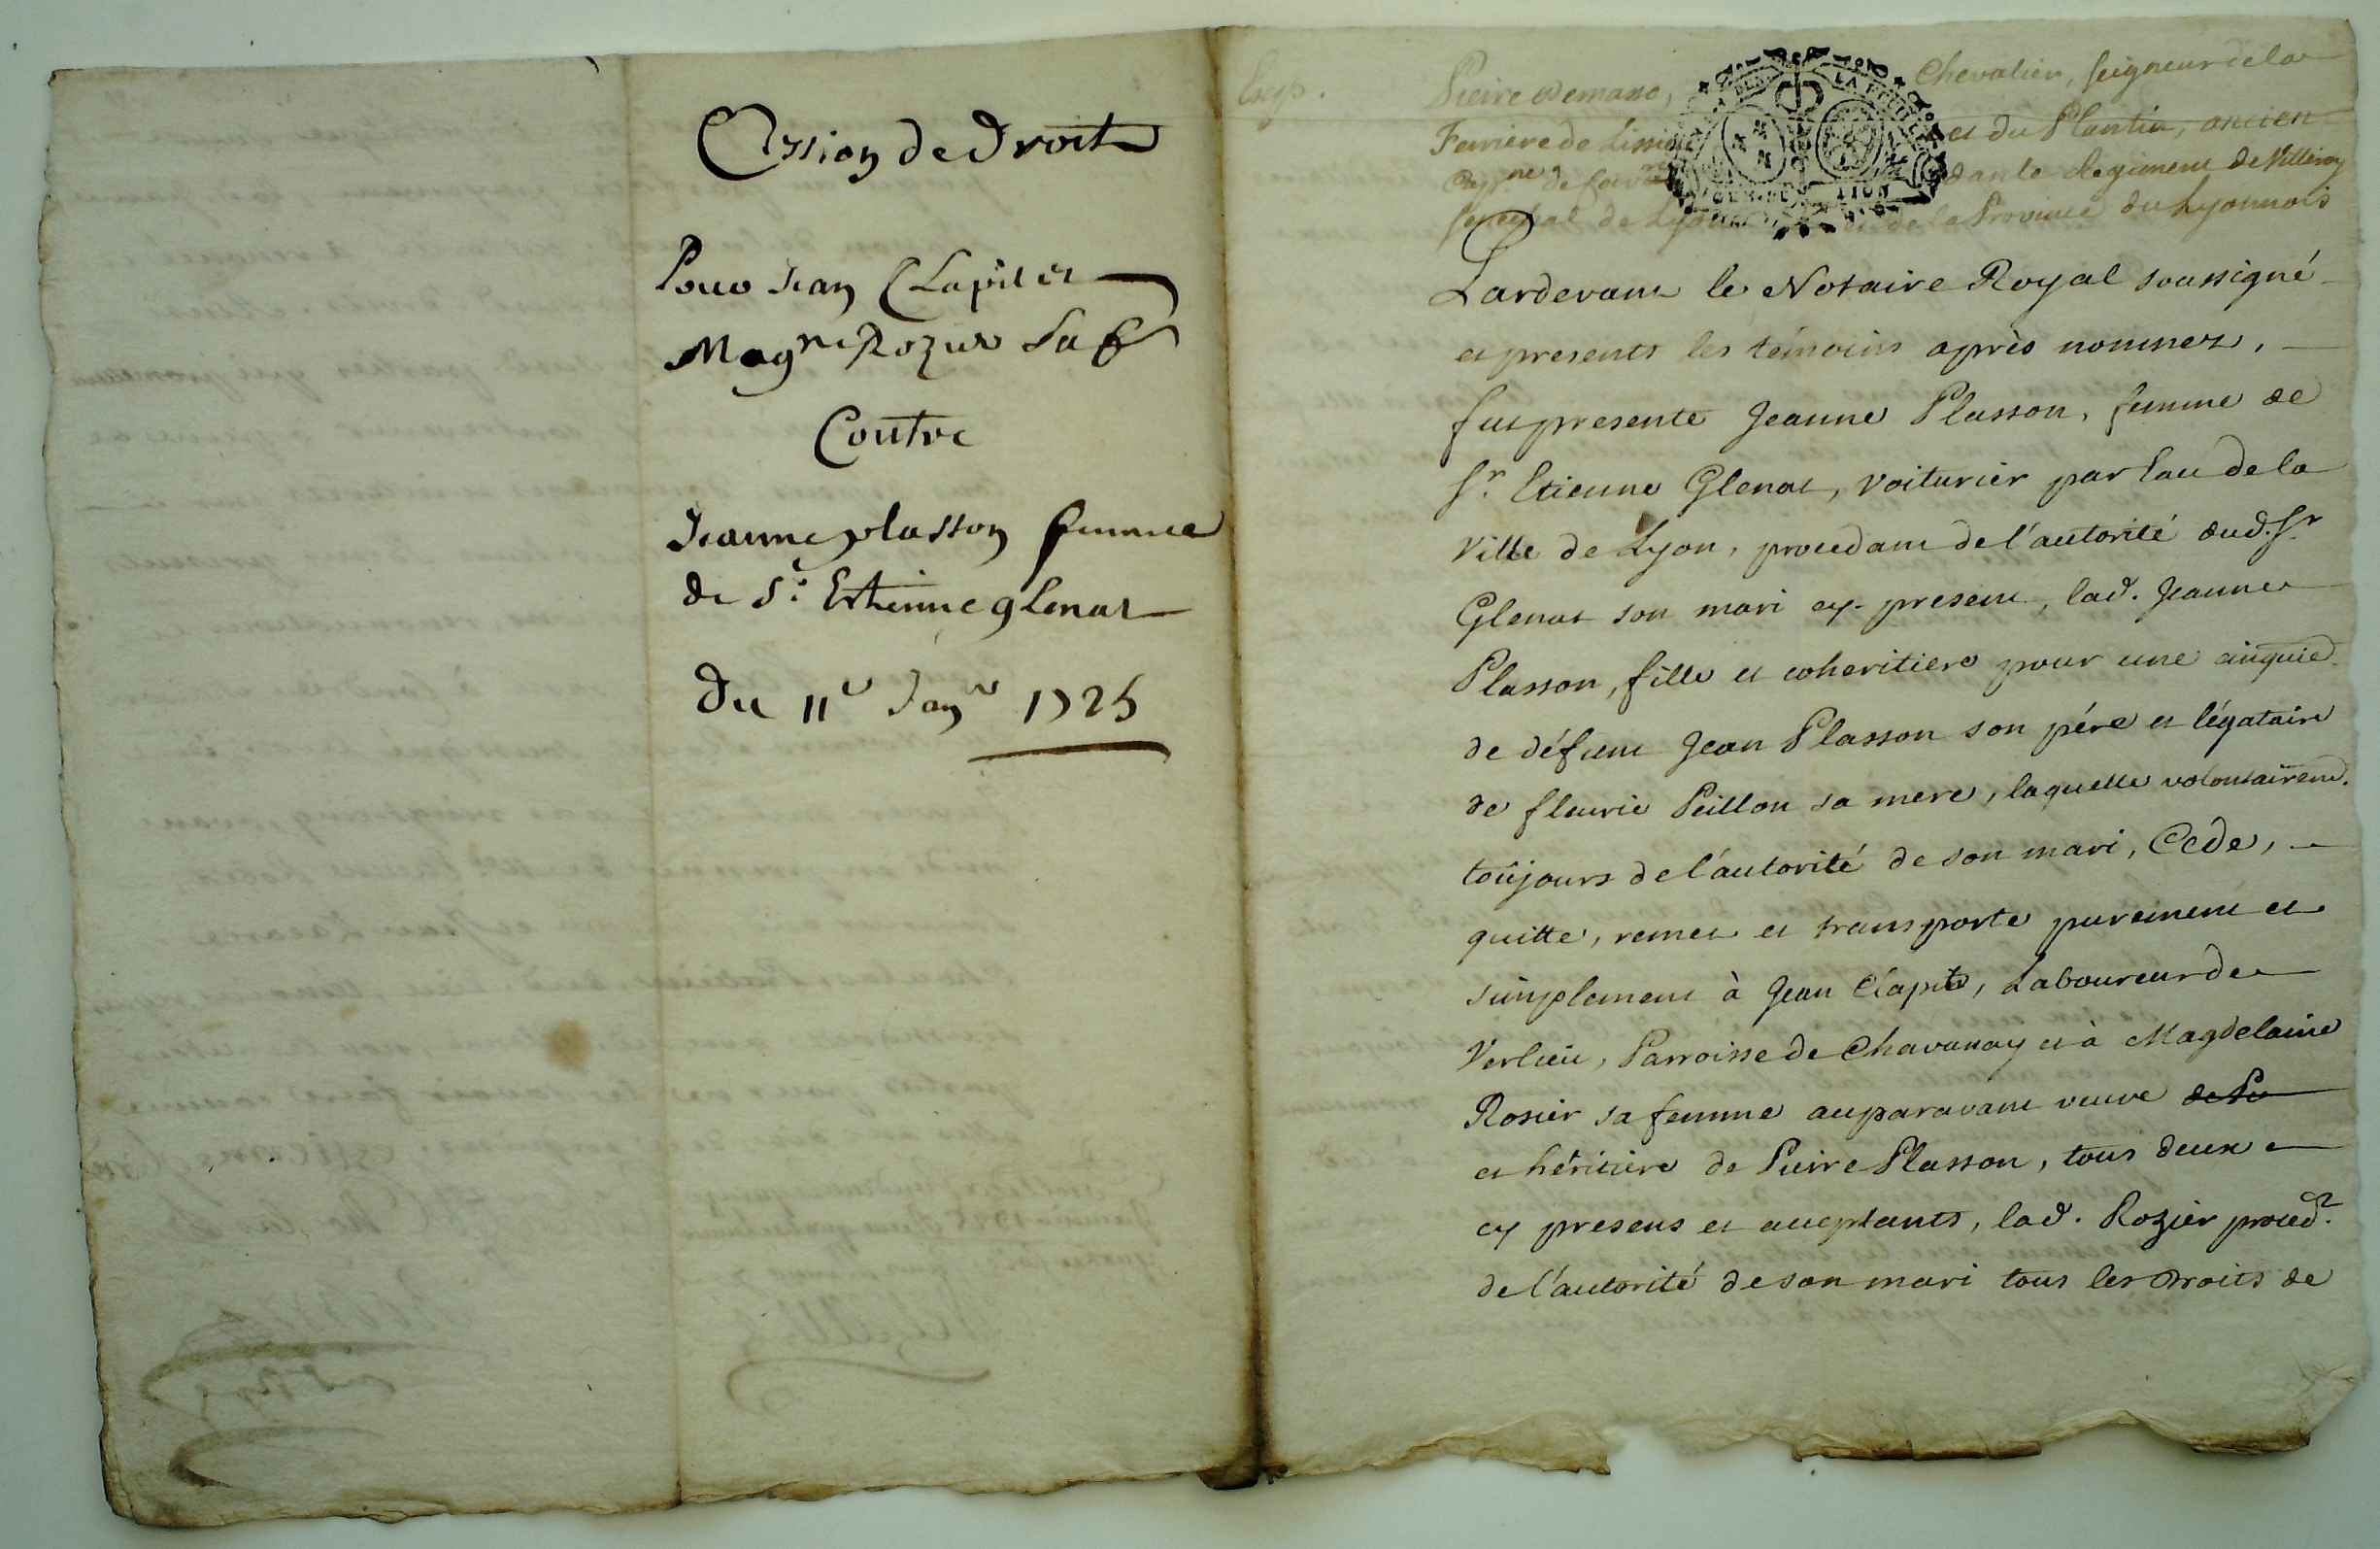 Cession de Droit
Pour Jean Clapit et
Magne Rozier sa f
Contre
Jeanne plasson femme
de Sr. Ethienne glenat
Du 11e Janer 1725
Exp.
Pierre Demasso, Chevalier, seigneur de la
Ferriere de Lissieu et du Plantin, ancien
Cappne de dans le Regiment de Villeroy
senechal de Lyon et de la Province du Lyonnois
Pardevant le Notaire Royal soussigné
et presents les témoins après nommez,
fut presente Jeanne Plasson, femme de
Sr. Etienne Glenat, voiturier par Eau de la
Ville de Lyon, procedant de l'autorité dud. Sr
Glenat son mari cy present, lad. Jeanne
Plasson, fille et coheritiere pour une cinquie.
de défunt Jean Plasson son pére et légataire
de fleurie Peillon sa mere, laquelle volontairemt.
toûjours de l'autorité de son mari, Cede,
quitte, remet et transporte purement et
simplement à Jean Clapit, Laboureur de
Verlieu, Parroisse de Chavanay et à Magdelaine
Rosier sa femme auparavant veuve
et héritiere de Pierre Plasson, tous deux
cy presens et acceptants, lad. Rozier proced.
de l'autorité de son mari tous les Droits de